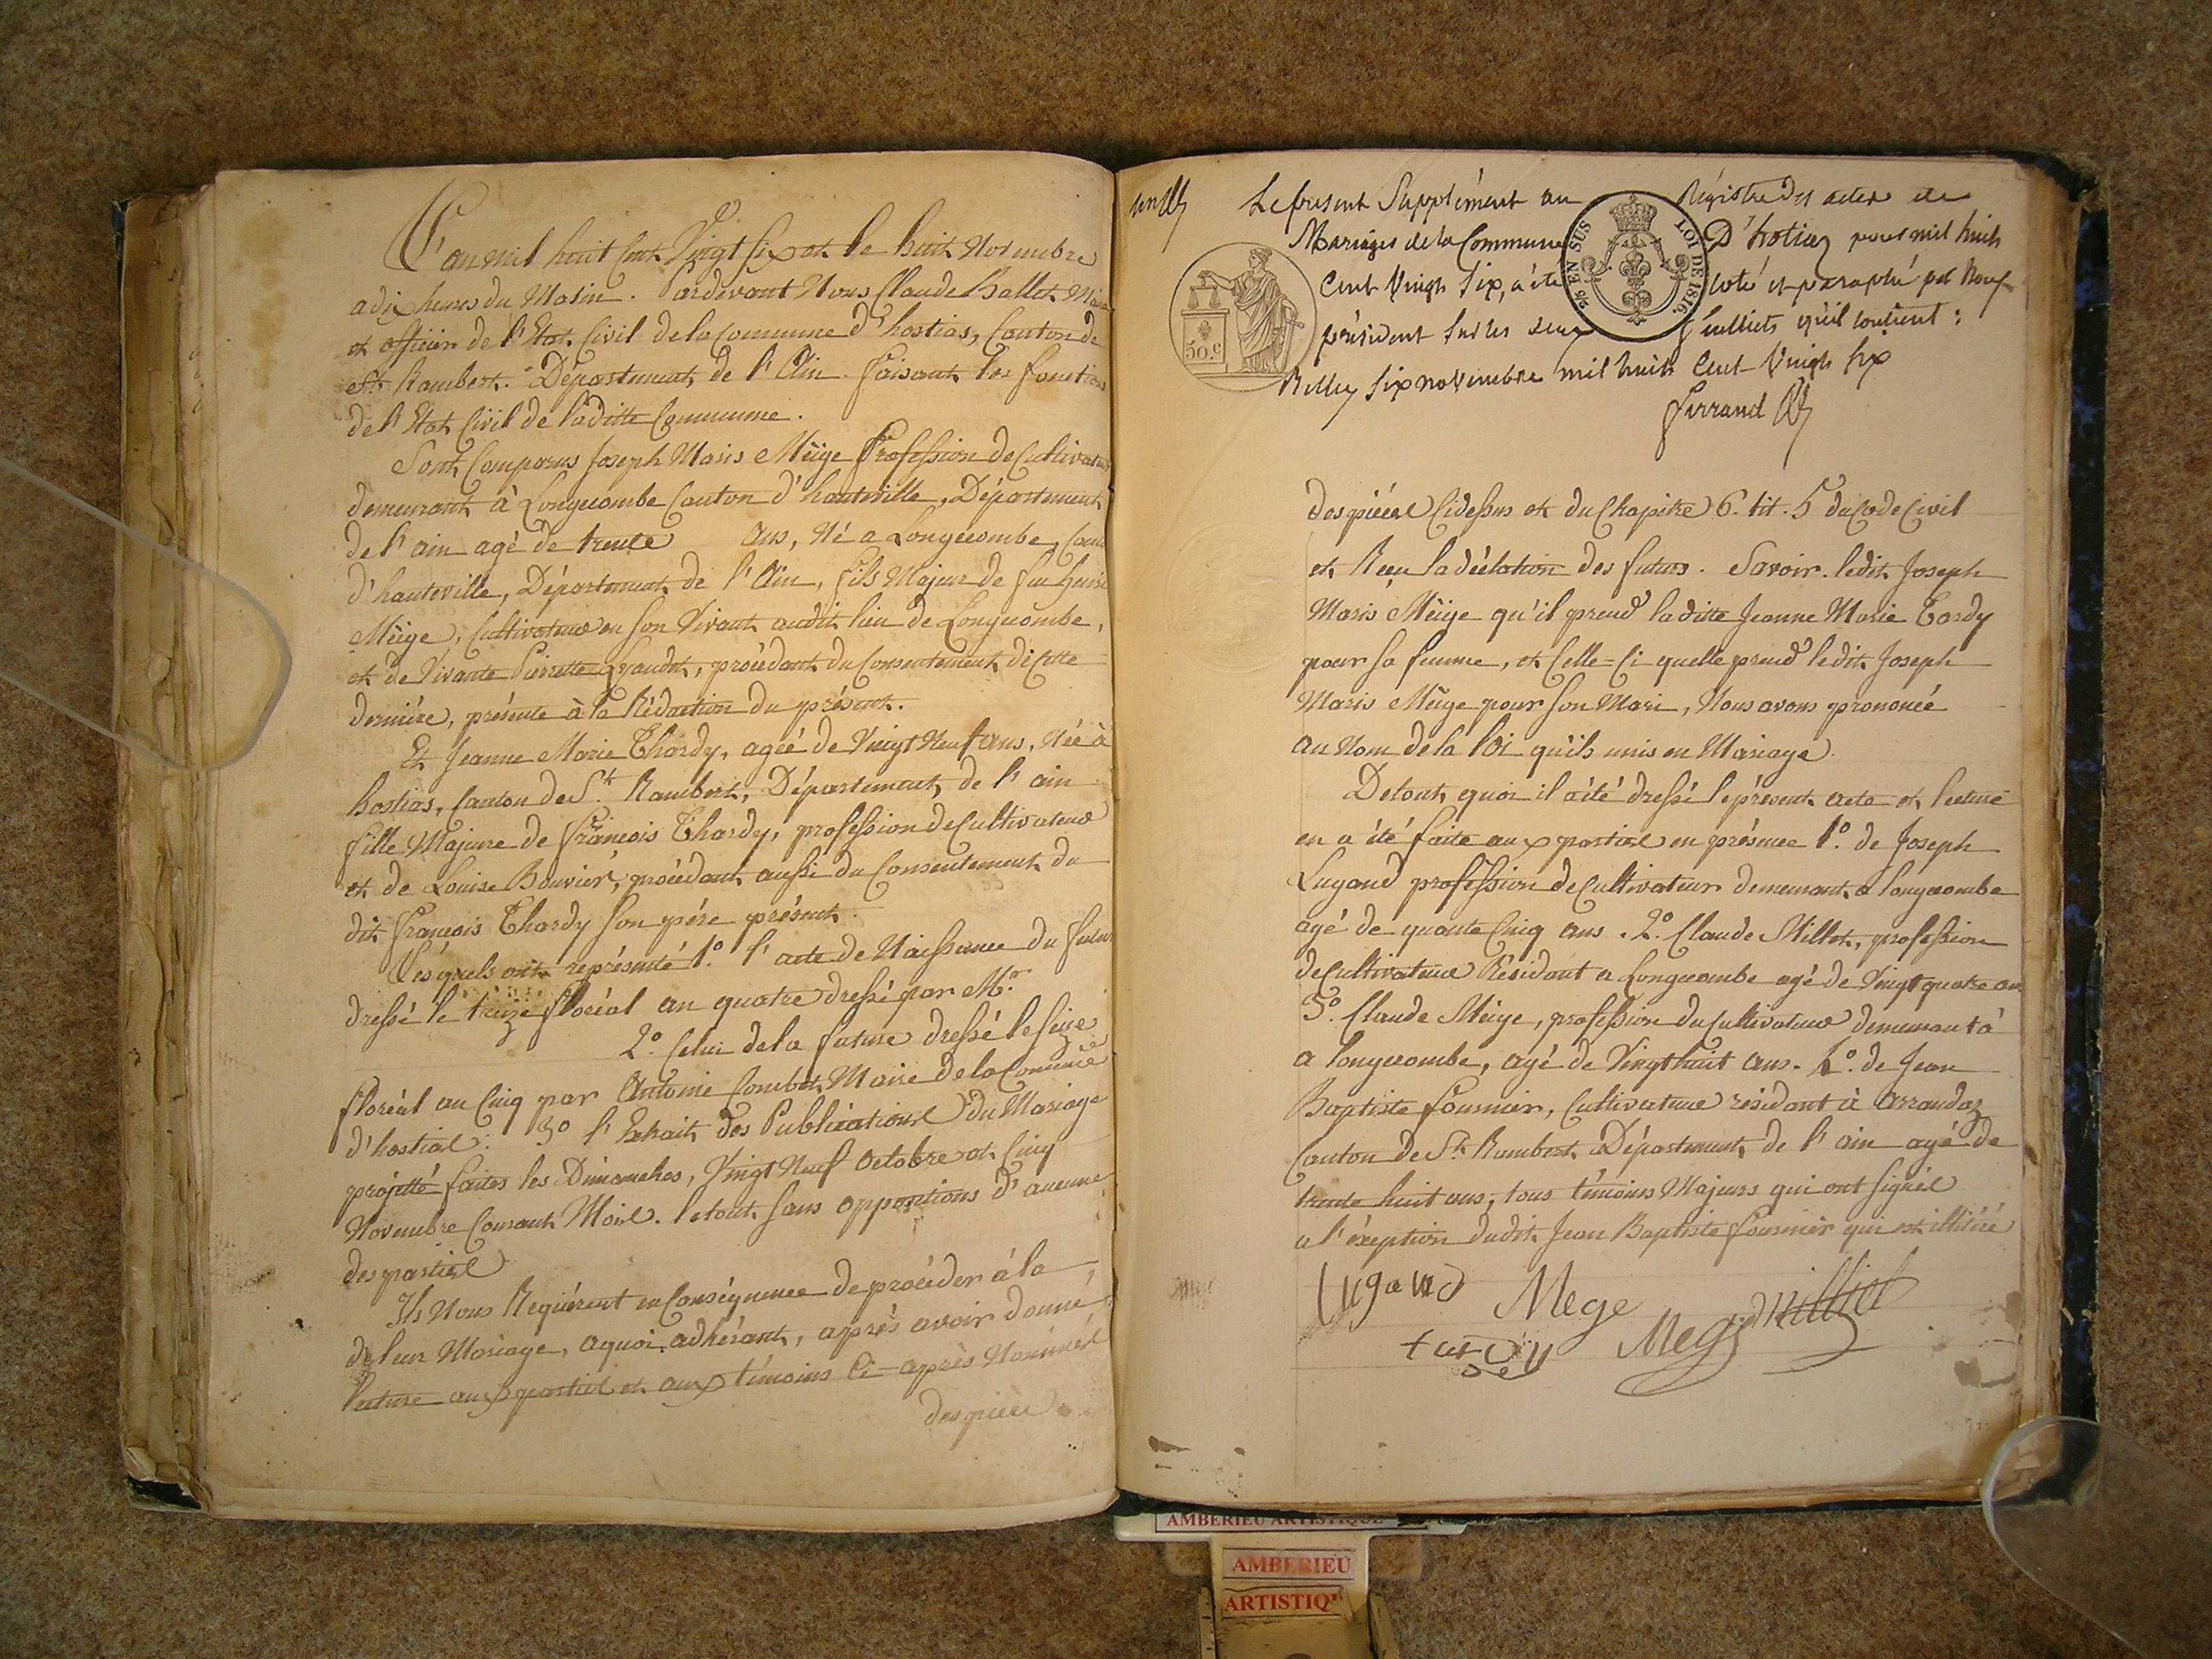 L'an mil huit cent Vingt six et le huit Novembre
a dix heures du Matin. Pardevant Nous Claude Ballet Maire
et officier de l'Etat Civil de la Commune d'hostias, Canton de
St. Rambert. Département de l'Ain. faisant les fonctions
de l'Etat Civil de laditte Commune.
Sont Comparus Joseph Maris Mêige Profession de Cultivateur
demeurant à Longecombe Canton d'hauteville, Département
de l'ain agé de trente ans, Né a Longecombe, Can
d'hauteville, Département de l'Ain, fils Majeur de feu
Mêige, Cultivateur en son Vivant audit lieu de Longecombe,
et de Vivante Pierrette procédant du Consentement de Cette
dernière, présente à la Rédaction du présent.
Et Jeanne Marie Thardy, ageé de Vingt Neuf ans, Née à
hostias, Canton de St. Rambert, Département de l'ain
fille Majeure de François Thardy, profession de Cultivateur
et de Louise Bouvier, procédant aussi du Consentement du
dit François Thardy son père présent.
Lésquels ont représenté 1.º l'acte de Naissance du futur
dressé le treize floréal an quatre dressé par Mr.
2.º Celui dela future dressé le seize
floréal an Cinq par Antoine Combet Maire de la Commune
d'hostias. 3º l'Extrait des Publications du Mariage
projetté faites les Dimanches, Vingt Neuf octobre et Cinq
Novembre Courant Mois. le tout sans oppositions d'aucune
des parties
Ils Nous Requérent en Conséquence de procéder à la
de leur Mariage, aquoi adhérant, après avoir donné
lecture aux parties et aux témoins Ci-après Nommés
des pièces
Le present Supplément au Régistre des actes de
Mariages de la Commune D'hotias pour mil huit
Cent Vingt Six, a été coté et paraphé par Nous
président sur les deux feuillets qu'il contient :
Belley six novembre mil huit Cent Vingt Six
Ferrand
50.c
EN SUS LOI DE 1816.
des pièces Cidessus et du Chapitre 6. tit. 5 du Code Civil
et Reçu la déclation des futurs. Savoir. ledit Joseph
Maris Mêige qu'il prend laditte Jeanne Marie Tardy
pour sa femme, et Celle-Ci quelle prend ledit Joseph
Maris Mêige pour son Mari, Nous avons prononcé
au Nom de la loi qu'ils unis en Mariage
De tout quoi il a été dressé le présent acte et lecture
en a été faite aux parties en présence 1.º de Joseph
Lugand profession de Cultivateur demeurant a longecombe
agé de quante Cinq ans. 2.º Claude Milliet, profession
de Cultivateur Résidant a Longecombe agé de Vingt quatre an
3.º Claude Mêige, profession du Cultivateur demeurant à
a longecombe, agé de Vingt huit ans. 4.º de Jean
Baptiste fournier, Cultivateur résidant à arrandaz
Canton de St. Rambert Département de l'ain agé de
trente huit ans, tous témoins Majeurs qui ont signés
a l'éxeption dudit Jean Baptiste fournier qui est illitéré
Lugand Mege
tardy Mege milliet
AMBERIEU ARTISTIQUE
AMBERIEU
ARTISTIQ